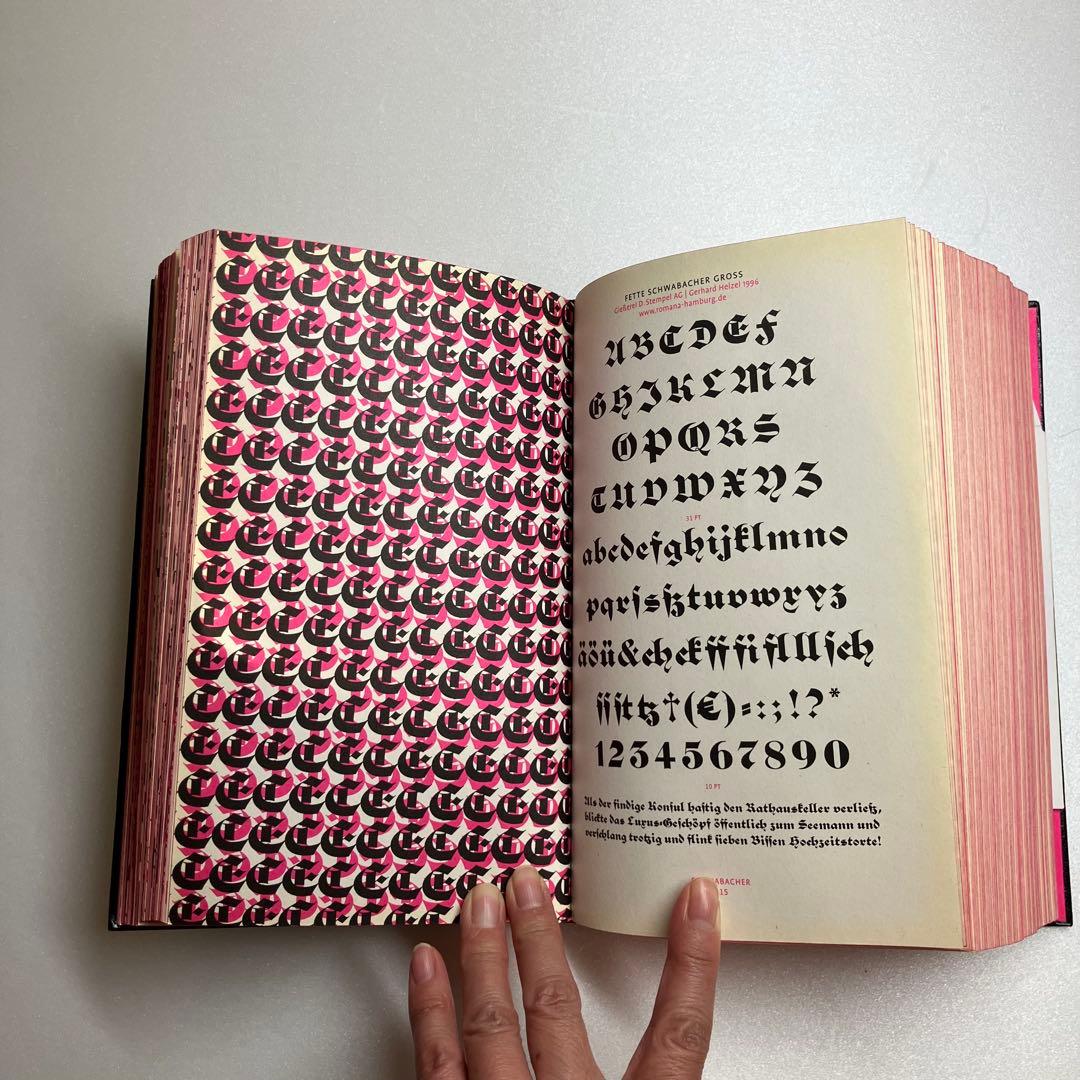 FETTE SCHWABACHER GROSS
Gießerei D. Stempel AG | Gerhard Helzel 1996
www.romana-hamburg.de
ABCDEF
GHIJKLMN
OPQRS
TUVWXYZ
31 PT
abcdefghijklmno
pqrſsßtuvwxyz
äöü&chckfffiflllſch
ſſſttz†(€)-:;!?*
1234567890
10 PT
Als der findige Konſul haſtig den Rathauskeller verließ,
blickte das Luxus-Geſchöpf öffentlich zum Seemann und
verſchlang trotzig und flink ſieben Biſſen Hochzeitstorte!